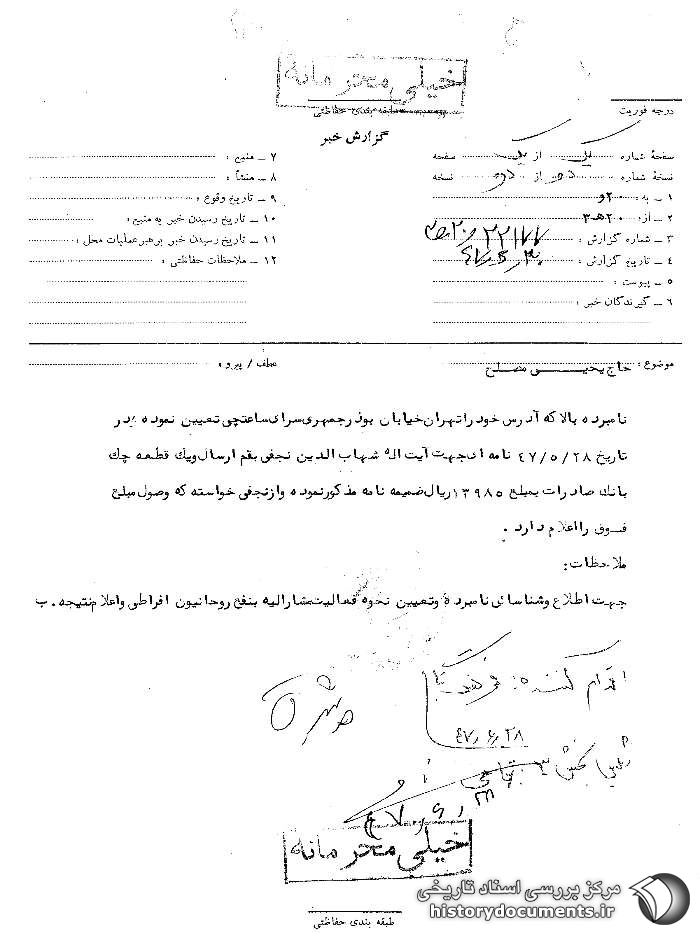 خیلی محرمانه
طبقه بندی حفاظتی
درجه فوریت
گزارش خبر
صفحهٔ شماره یک از یک صفحه
نسخهٔ شماره دو از دو نسخه
۱ ـ به : ۲۰ و
۲ ـ از: ۲۰ هـ ۳
۳ ـ شماره گزارش : ۲۲۱۷۷
۴ ـ تاریخ گزارش :
۵ ـ پیوست :
۶ ـ گیرندگان خبر :
۷ ـ منبع :
۸ ـ منشأ :
۹ ـ تاریخ وقوع :
۱۰ ـ تاریخ رسیدن خبر به منبع :
۱۱ ـ تاریخ رسیدن خبر برهبرعملیات محل :
۱۲ ـ ملاحظات حفاظتی :
موضوع : حاج یحیـــی مصلح
عطف / پیرو :
نامبرده بالا که آدرس خود را تهران خیابان بوذرجمهری سرای ساعتچی تعیین نموده در
تاریخ ۴۷/۵/۲۸ نامه ای جهت آیت اله شهاب الدین نجفی بقم ارسال ویک قطعه چک
بانک صادرات بمبلغ ۱۳۹۸۵ ریال ضمیمه نامه مذکور نموده واز نجفی خواسته که وصول مبلغ
فوق را اعلام دارد .
ملاحظات :
جهت اطلاع وشناسائی نامبرده وتعیین نحوه فعالیت مشارالیه بنفع روحانیون افراطی واعلام نتیجه . ب
اقدام کننده :
۴۷٫۶٫۲۸
رئیس بخش ۳ :
خیلی محرمانه
طبقه بندی حفاظتی
مرکز بررسی اسناد تاریخی
historydocuments.ir